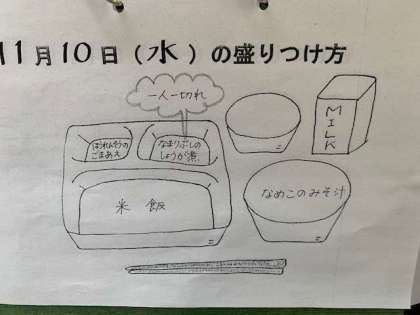 11月10日（水）の盛りつけ方
一人一切れ
ほうれんそうの
ごまあえ
なまりぶしの
しょうが煮
MILK
米飯
なめこのみそ汁